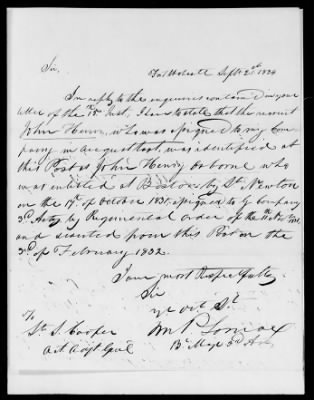 Fort Wolcott Sept 2d 1834
Sir,
In reply to the enquiries contained in your
letter of the 15th Inst, I have to state that the recruit
John Henry, who was assigned to my Com
pany in August last, was identified at
this Post as John Henry Osborne who
was enlisted at Boston by Lt Newton
on the 19th of October 1831, assigned to G Company
3d Arty by Regimental order of the 11th Nov 1831
and deserted from this Post on the
3d of February 1832.
I am most Respectfully
Sir
yr obt St
M P Lomax
Bt Maj 3d Arty
To
Lt S. Cooper
Act Adjt Genl